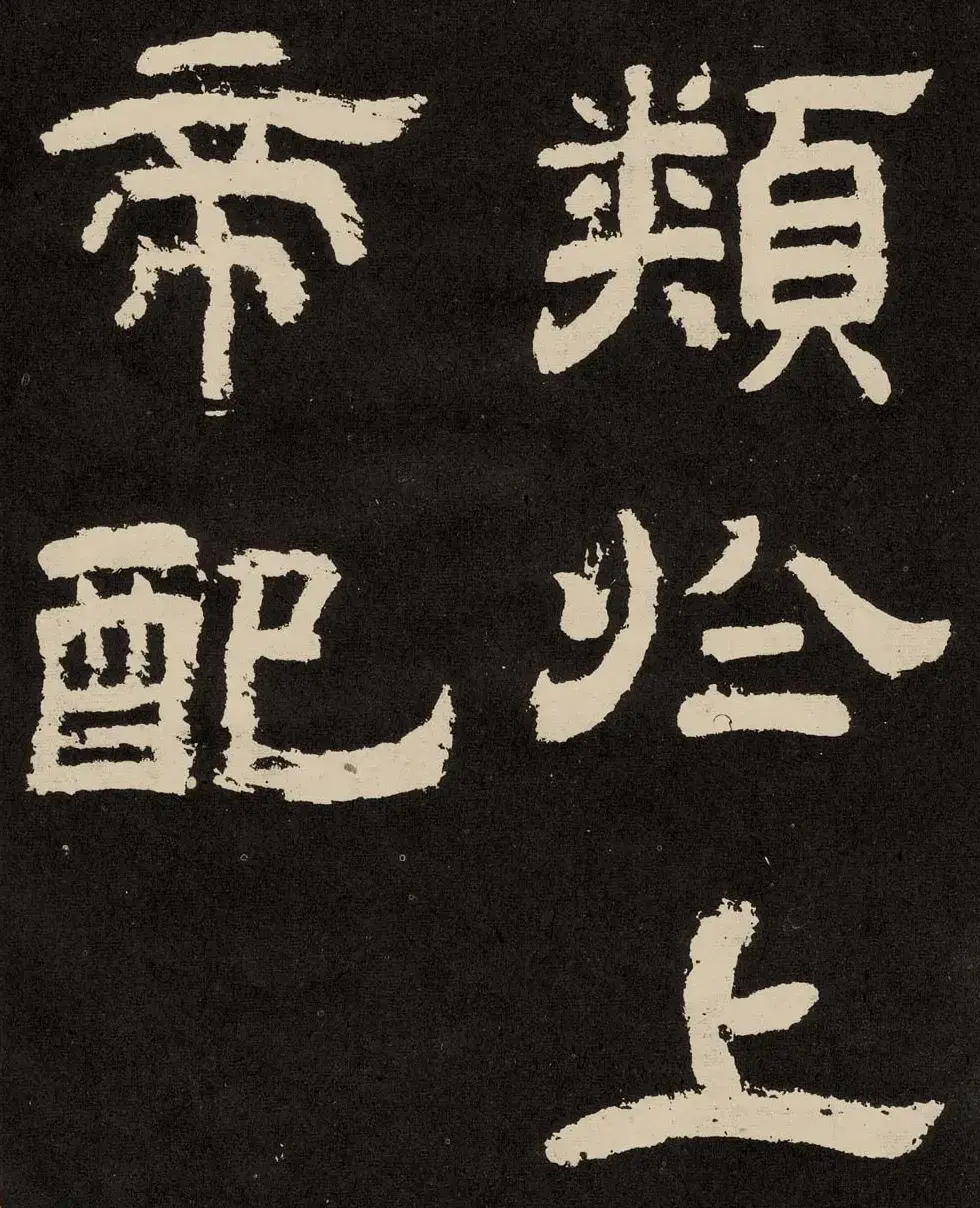 類於上
帝配